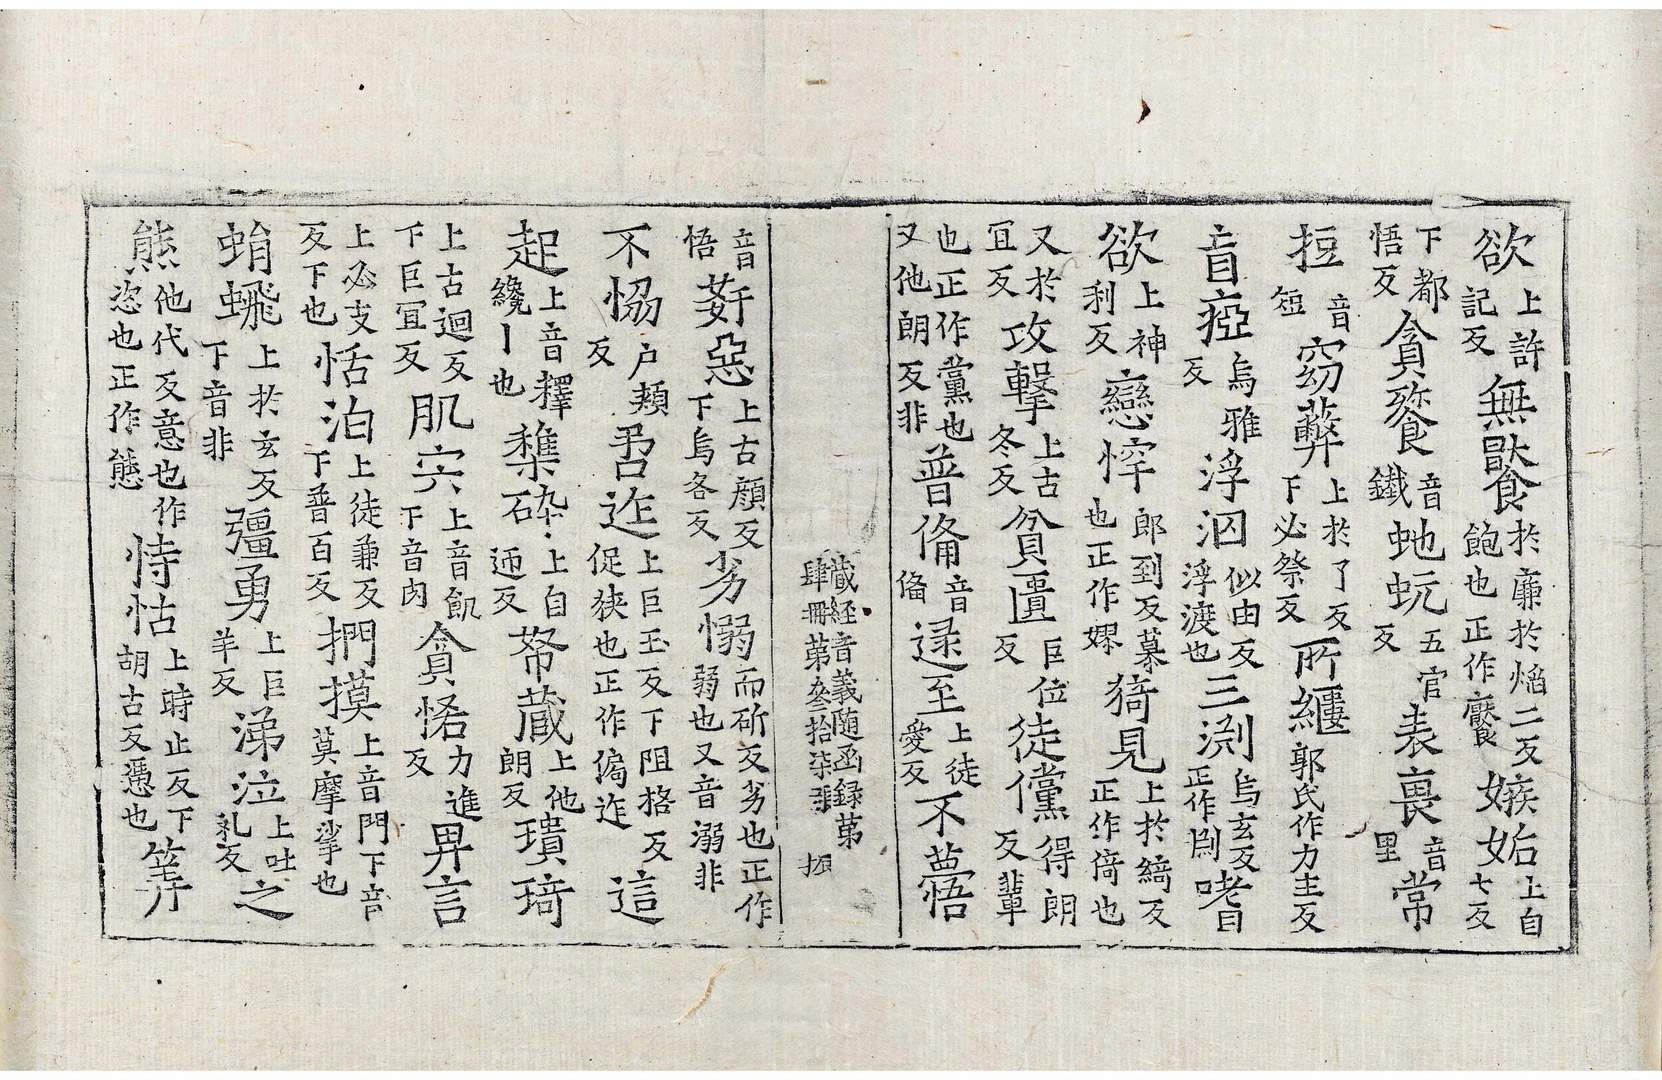 欲上許記反無猒於廉於焰二反飽也正作饜嫉始上自七反
下都悟反貪飻音鐵虵蚖五官反表裏音里常
挋音短窈蔽上於了反下必祭反所纏郭氏作力主反
盲瘂烏雅反浮泅似由反浮渡也三渕烏玄反正作㓮嗜
欲上神利反戀悙郎到反慕也正作嫪猗見上於綺反正作倚也
又於宜反攻擊上古冬反貧匱巨位反徒儻得朗反輩
也正作黨也又他朗反非普俻音俻逯至上徒愛反不蘁悟
藏經音義隨函録第肆冊第叄拾柒張振
音悟姧惡上古顔反下烏各反劣愵而斫反劣也正作弱也又音溺非
不㤲户頰反𠰥迮上巨玉反下阻格反促狹也正作偪迮這
起上音釋纔丨也䊝砕上自迊反帑藏上他朗反璝琦
上古迴反下巨宜反肌宍上音飢下音肉貪悋力進反畀言
上必支反下也恬泊上徒兼反下普百反捫摸上音門下音莫摩挲也
蛸蜚上於玄反下音非彊勇上巨羊反涕泣上吐乩反之
熊他代反意也作恣也正作態恃怙上時止反下胡古反憑也筭